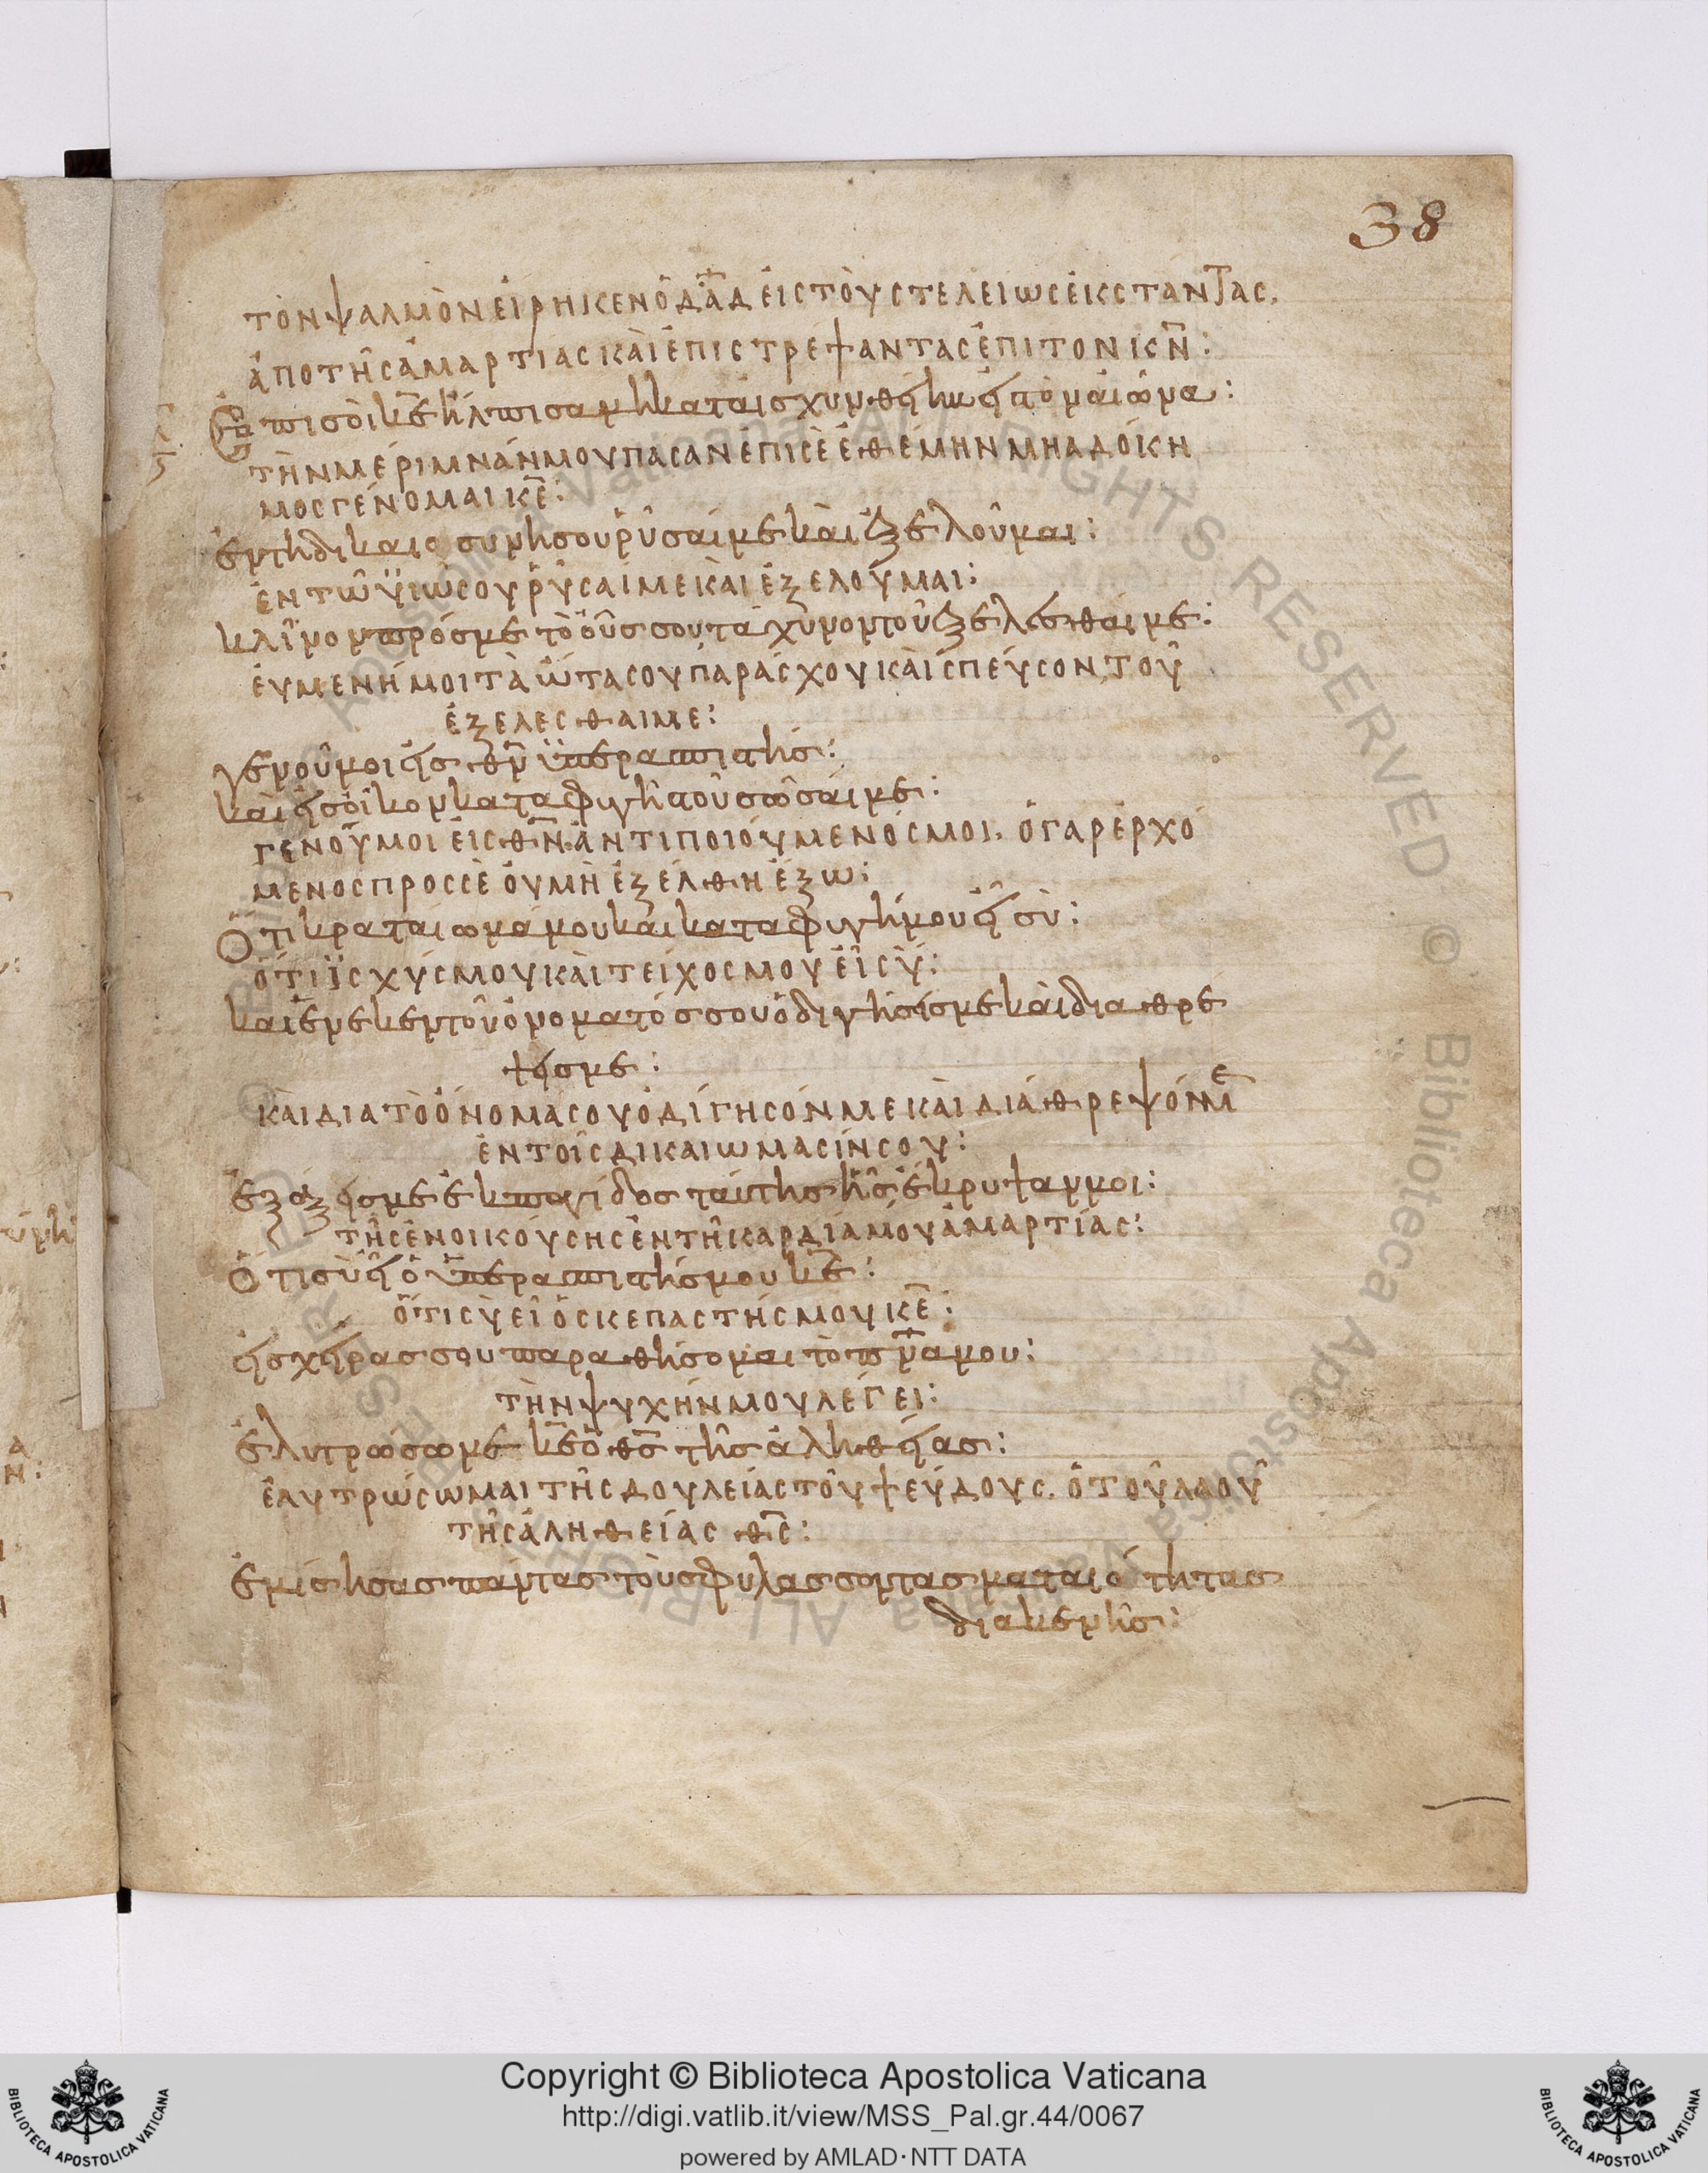 38
τὸν ψαλμὸν εἴρηκεν ὁ δᾱδ εἰς τοὺς τελείως ἐκστάντας,
ἀπὸ τῆς ἁμαρτίας καὶ ἐπιστρέψαντας ἐπὶ τὸν κ̅ν̅:
Ἐπὶ σοὶ κ̅ε̅ ἤλπισα μὴ καταισχυνθείην εἰς τὸν αἰῶνα:
τὴν μέριμνάν μου πᾶσαν ἐπὶ σὲ ἐθέμην μὴ ἀδόκη
μος γένομαι κ̅ε̅:
ἐν τῆ δικαιοσύνη σου ῥῦσαί με καὶ ἐξελοῦμαι:
ἐν τῶ υἱῶ σου ῥῦσαί με καὶ ἐξελοῦμαι:
κλῖνον πρός με τὸ οὖς σου τάχυνον τοῦ ἐξελέσθαι με:
εὐμενή μοι τὰ ὦτα σου παράσχου καὶ σπεύσον τοῦ
ἐξελέσθαι με:
γενοῦ μοι εἰς θ̅ν̅ ὑπερασπιστὴς:
καὶ εἰς οἶκον καταφυγῆς τοῦ σῶσαί με:
γενοῦ μοι εἰς θ̅ν̅ ἀντιποιούμενός μοι. ὁ γὰρ ἐρχό
μενος πρὸς σὲ οὐ μὴ ἐξέλθη ἔξω:
Ὅτι κραταίωμά μου καὶ καταφυγή μου εἶ σὺ:
ὅτι ϊσχύς μου καὶ τεῖχος μου εἶ σὺ:
καὶ ἕνεκεν τοῦ ὀνόματός σου ὁδιγήσις με καὶ διαθρέ
ψεις με:
καὶ διὰ τὸ ὄνομά σου ὁδίγησόν με καὶ διάθρεψόν με
ἐν τοῖς δικαιώμασίν σου:
ἐξάξεις με ἐκ παγίδος ταύτης ἧς ἔκρυψαν μοι:
τῆς ἐνοικούσης ἐν τῆ καρδία μου ἁμαρτίας:
Ὅτι σὺ εἶ ὁ ὑπερασπιστής μου κ̅ε̅:
ὅτι σὺ εἶ ὁ σκεπαστής μου κ̅ε̅:
εἰς χεῖρας σου παραθήσομαι τὸ π̅ν̅α̅ μου:
τὴν ψυχήν μου λέγει:
ἐλυτρώσω με κ̅ε̅ ὁ θ̅ς̅ τῆς ἀληθείας:
ἐλυτρώσω μαι τῆς δουλείας τοῦ ψεύδους. ὁ τοῦ λαοῦ
τῆς ἀληθείας θ̅ς̅:
ἐμίσησας πάντας τοὺς φυλάσσοντας ματαιότητας
διακενῆς:
Copyright © Biblioteca Apostolica Vaticana
http://digi.vatlib.it/view/MSS_Pal.gr.44/0067
powered by AMLAD·NTT DATA
BIBLIOTECA APOSTOLICA VATICANA
BIBLIOTECA APOSTOLICA VATICANA